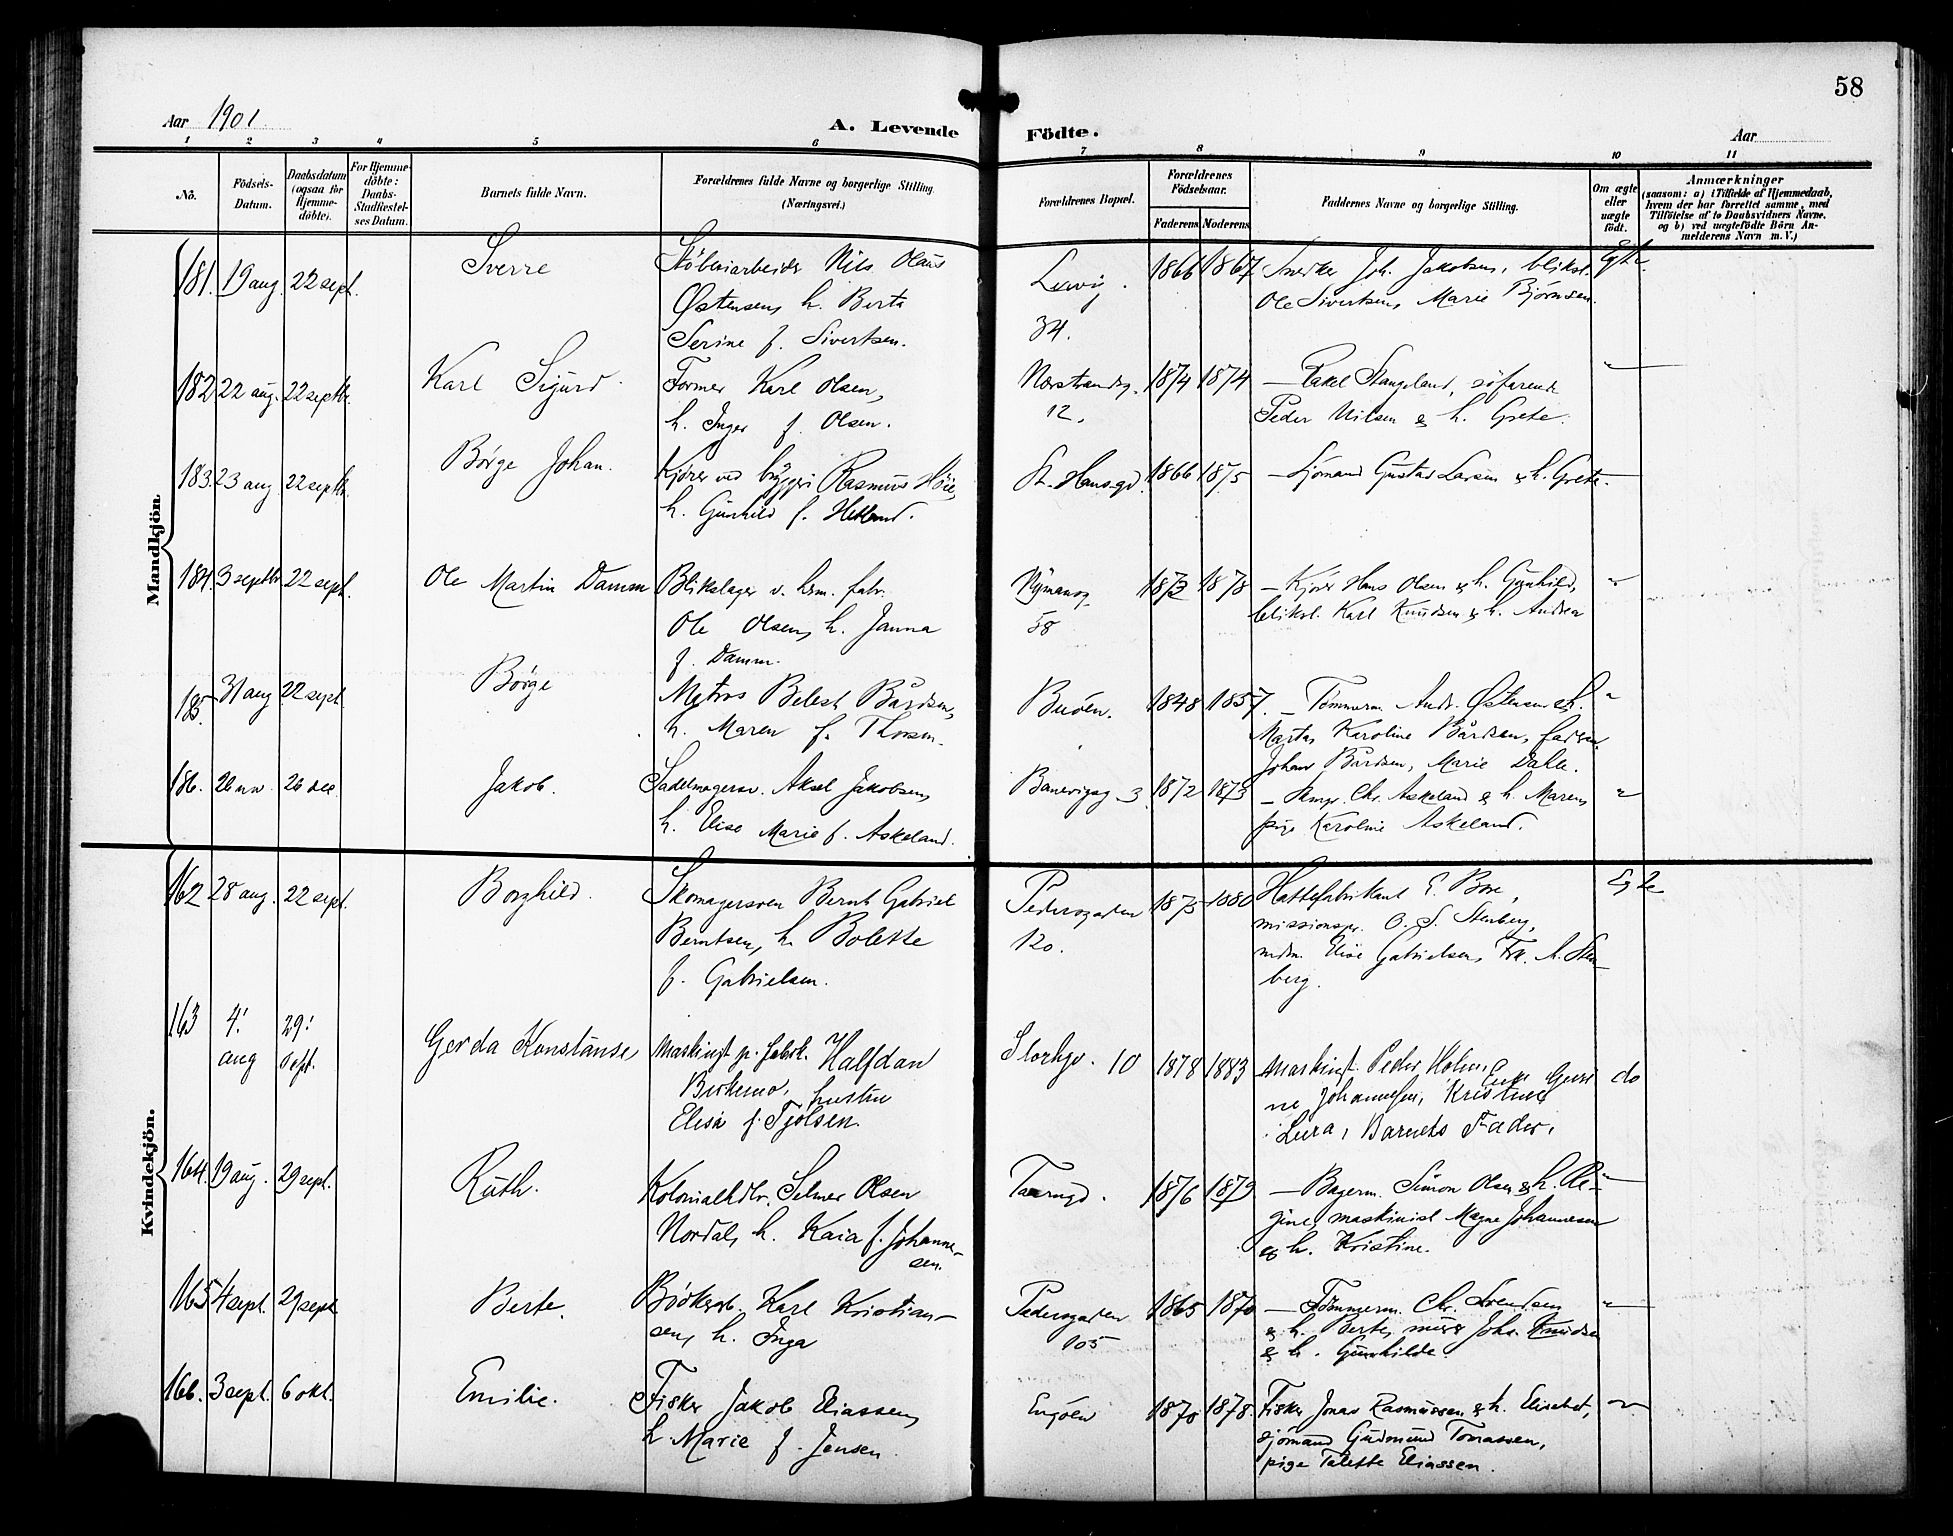 58
Aar 1901
A. Levende Födte.
Aar
1 2 3 4 5 6 7 8 9 10 11
No.
Födsels-Datum.
Daabsdatum (ogsaa for Hjemme-döbte).
For Hjemme-döbte: Daabs-Stadfæstel-ses Datum.
Barnets fulde Navn.
Forældrenes fulde Navne og borgerlige Stilling. (Næringsvei.)
Forældrenes Bopæl.
Forældrenes Födselsaar.
Faderens Moderens
Faddernes Navne og borgerlige Stilling.
Om ægte eller uægte födt.
Anmærkninger
(saasom: a) i Tilfælde af Hjemmedaab,
hvem der har forrettet samme, med
Tilföielse af to Daabsvidners Navne,
og b) ved uægtefödte Börn An-
melderens Navn m. V.)
Mandkjön.
181. 19 aug. 22 sept. Sverre
Nils Olaus
Østensen, h. Berta
Serine f. Sivertsen.
34.
1866 1867 Snedker Joh. Jakobsen, bliksl.
Ole Sivertsen, Marie Bjørnsen.
Egte.
182 22 aug. 22 septbr. Karl Sigurd
Former Karl Olsen,
h. Inger f. Olsen.
12.
1874 1874 — Rakel Stangeland, søfarende
Peder Nilsen & h. Grete.
183. 23 aug 22 septbr. Børge Johan.
Kjører ved bryggeri Rasmus Høie,
h. Gunhild f. Hetland.
St. Hansgd.
1866 1875 — Sjømand Gustav Larsen & h. Grete.
184. 3 septbr 22 sept. Ole Martin Damm
Blikslager v. herm. fabr.
Ole Olsen, h. Janna
f. Damm.
58
1873 1878 — Kjører Hans Olsen & h. Gunhild,
bliksl. Karl Knudsen & h. Andrea
"
185. 31 aug 22 sept Børge
Matros Belest Bårdsen,
h. Maren f. Thorsen.
Buøen.
1848 1857. — Tømmerm. Andr. Østensen & h.
Marta, Karoline Bårdsen,
Johan Bårdsen, Marie Dahle.
"
186. 26 nov. 26 dec. Jakob.
Sadelmagersv. Aksel Jakobsen,
h. Elise Marie f. Askeland.
Banevigsg 3
1872 1873 — Chr. Askeland & h. Maren,
pige Karoline Askeland.
"
Kvindekjön.
162 28 aug. 22 sept. Borghild.
Skomagersven Bernt Gabriel
Berntsen, h. Bolette
f. Gabrielsen.
Pedersgaden
120.
1875 1880 Hattefabrikant E. Bore,
missionspr. O. S. Stenberg,
mdm. Elise Gabrielsen, Frk. A. Sten-
berg.
Egte
163 4. aug 29. sept. Gerda Konstanse
Maskinist p. fabrk. Halfdan
Birkemo, hustru
Elisa f. Tjølsen.
Storhgv. 10
1878 1883 Maskinist Peder Holm, Enke Guri
ne Johannessen, Kristine
Lura, Barnets Fader.
do
164. 19 aug. 29 sept. Ruth.
Kolonialhdlr. Selmer Olsen
Nordal, h. Kaia f. Johanne-
sen.
1876 1879 — Bagerm. Simon Olsen & h. Re-
gine, maskinist Magne Johannesen
& h. Kristine.
"
165 4 sept. 29 sept Berte.
Karl Kristian-
sen, h. Inga
Pedersgaden
105
1865 1870 — Tømmerm. Chr. Svendsen
& h. Berte, murer Johs. Knudsen
& h. Gunhilde.
"
166. 3 sept. 6 okt. Emilie.
Fisker Jakob Eliassen,
h. Marie f. Jensen.
Engøen
1870 1878. Fisker Jonas Rasmussen & h. Elisebet,
sjømand Gudmund Tonassen,
pige Talette Eliassen.
"